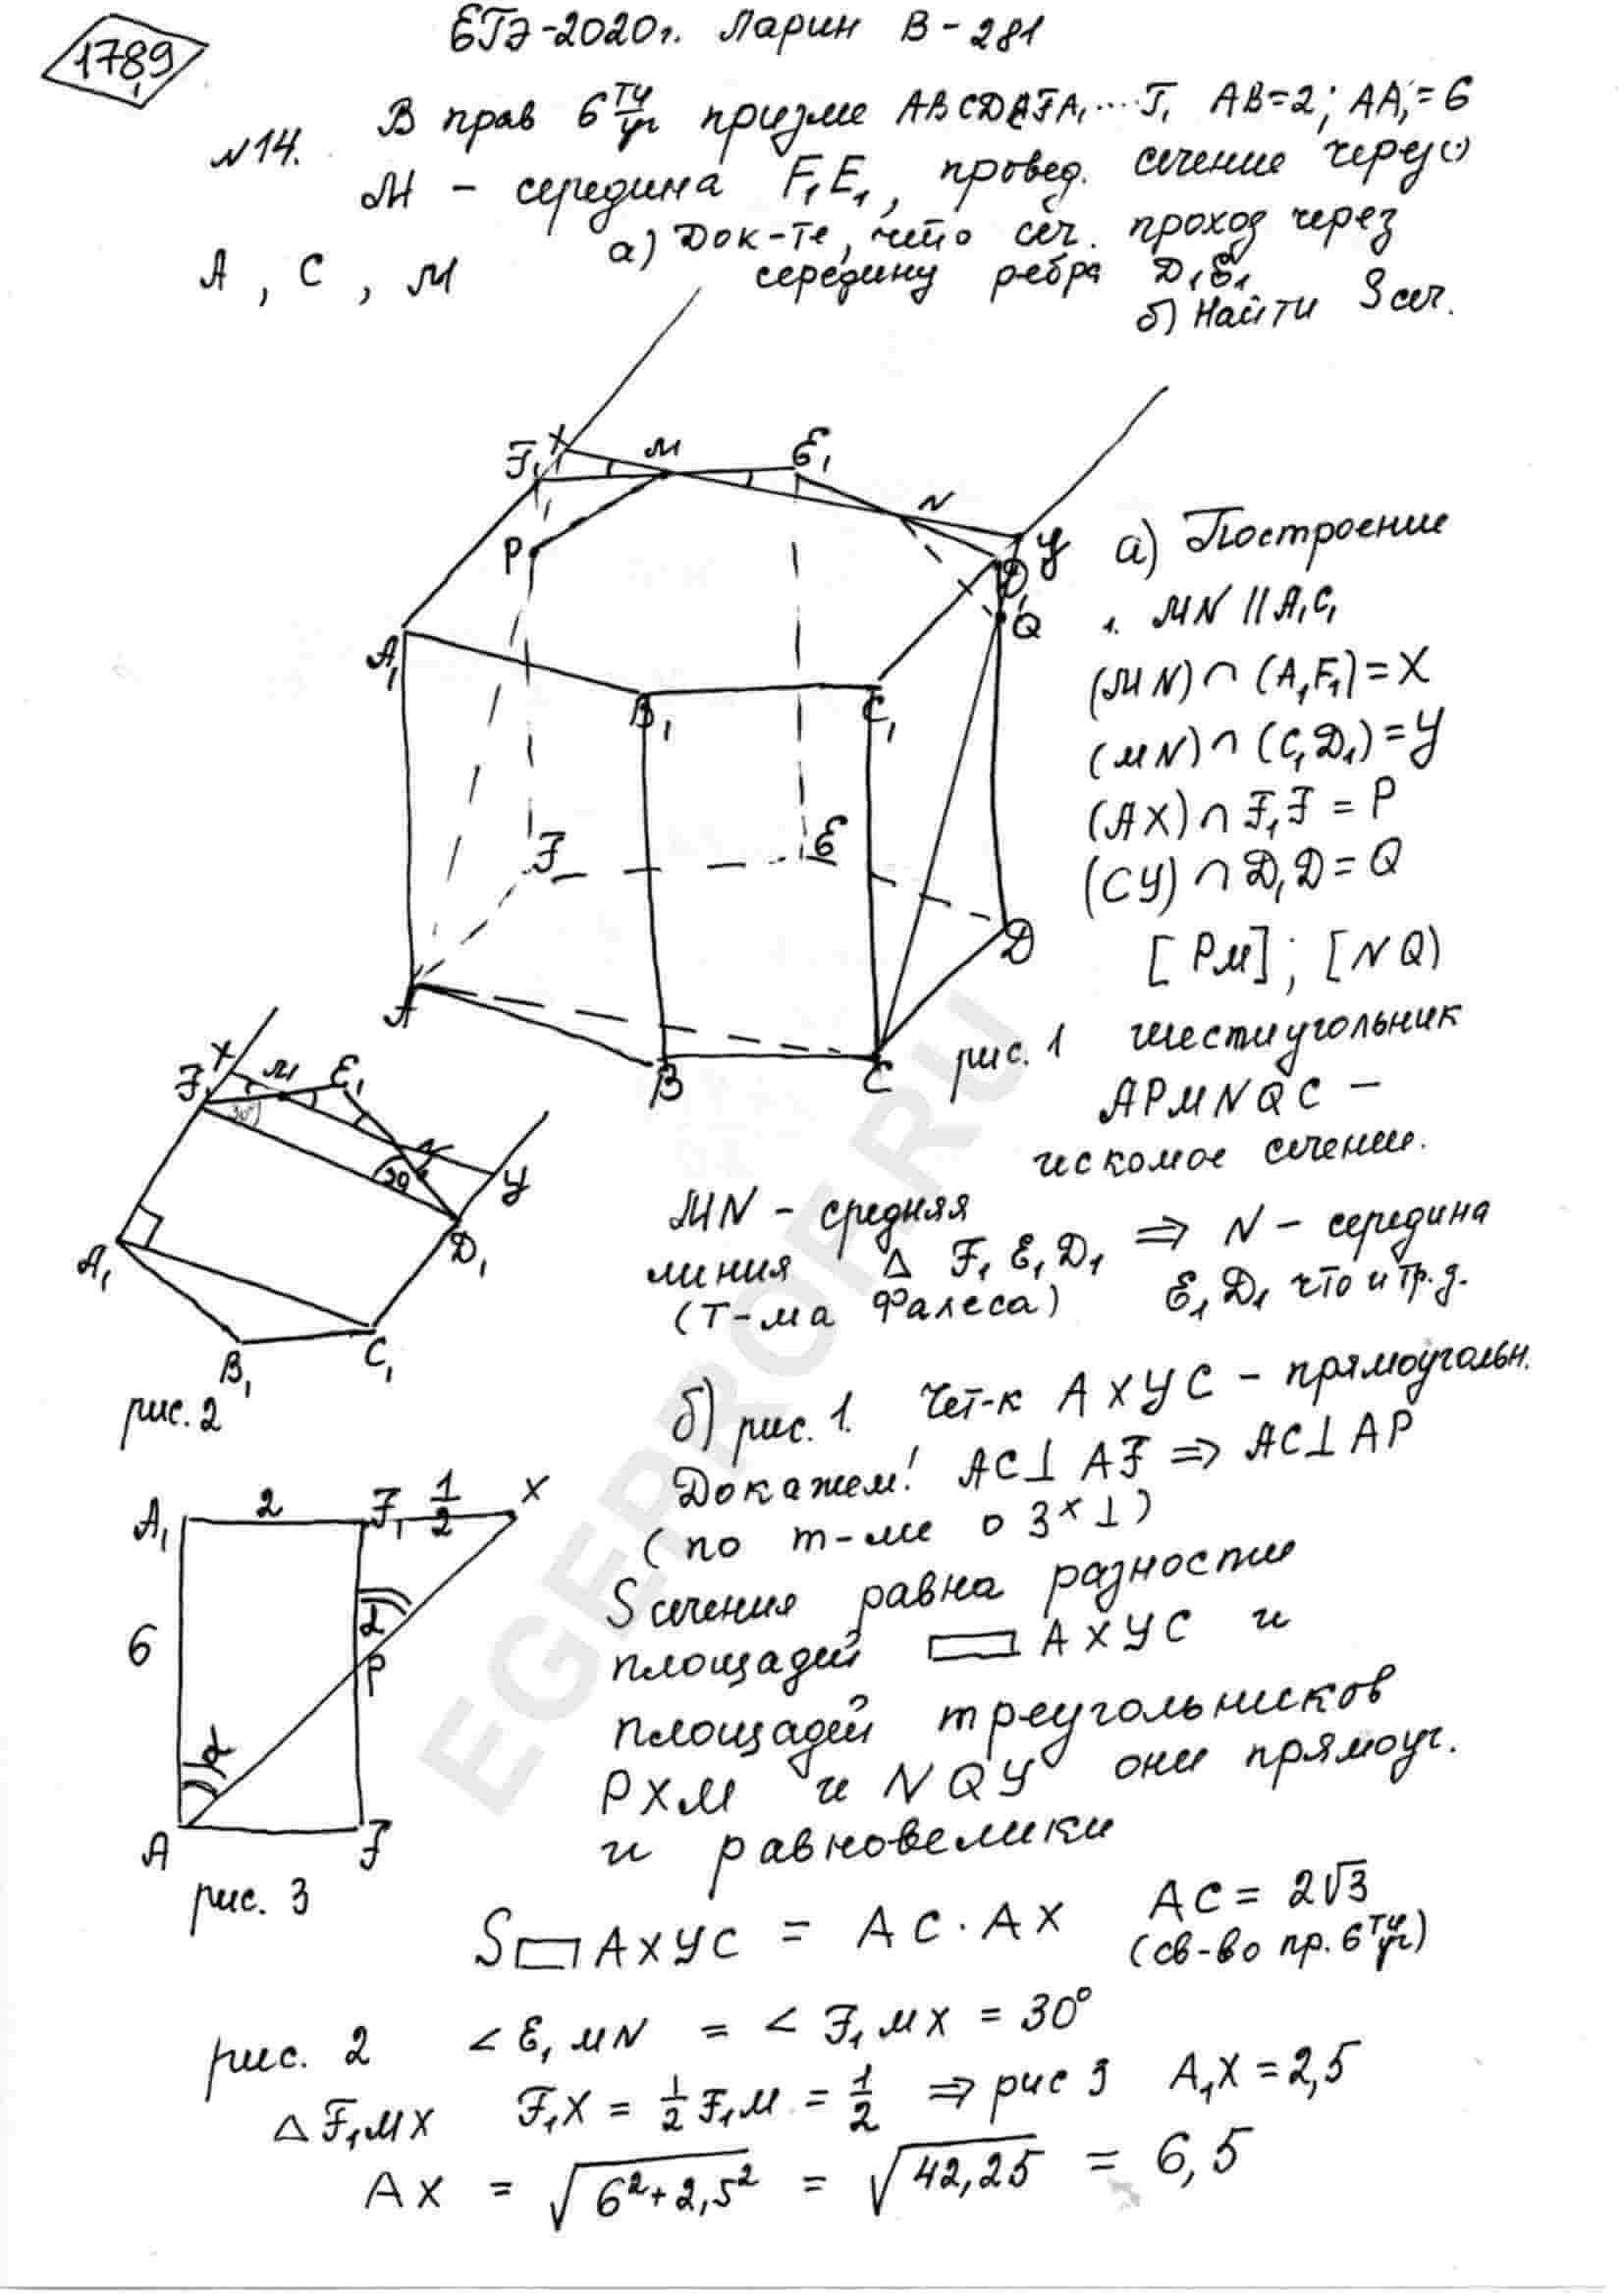 1789
ЕГЭ-2020г. Ларин В-281
№14. В прав 6ти/уг призме ABCDEFA₁....F₁ AB=2; AA₁=6
M - середина F₁E₁, провед. сечение через (·)
A, C, M
а) Док-те, что сеч. проход через
середину ребра D₁E₁
б) Найти Sсеч.
F₁ X M E₁ N Y D₁ Q P
A₁ B₁ C₁
F E D
A B C
рис. 1
а) Построение
1. MN || A₁C₁
(MN) ∩ (A₁F₁) = X
(MN) ∩ (C₁D₁) = Y
(AX) ∩ F₁F = P
(CY) ∩ D₁D = Q
[PM]; [NQ)
шестиугольник
APMNQC —
искомое сечение.
F₁ X M E₁ N Y
30°
30
A₁ B₁ C₁ D₁
рис. 2
MN - средняя
линия △ F₁E₁D₁ ⇒ N - середина
(т-ма Фалеса) E₁D₁ что и тр. д.
б) рис. 1. Чет-к AXYC - прямоугольн.
Докажем! AC⊥AF ⇒ AC⊥AP
(по т-ме о 3х ⊥)
A₁ 2 F₁ 1/2 X
6
α
P
α
A F
рис. 3
Sсечения равна разности
площадей ▭ AXYC и
площадей треугольников
PXM и NQY они прямоуг.
и равновелики
S▭AXYC = AC · AX AC = 2√3
(св-во пр. 6ти/уг)
рис. 2 ∠E₁MN = ∠F₁MX = 30°
△F₁MX F₁X = 1/2 F₁M = 1/2 ⇒ рис 3 A₁X = 2,5
AX = √(6² + 2,5²) = √42,25 = 6,5
EGEPROF.RU